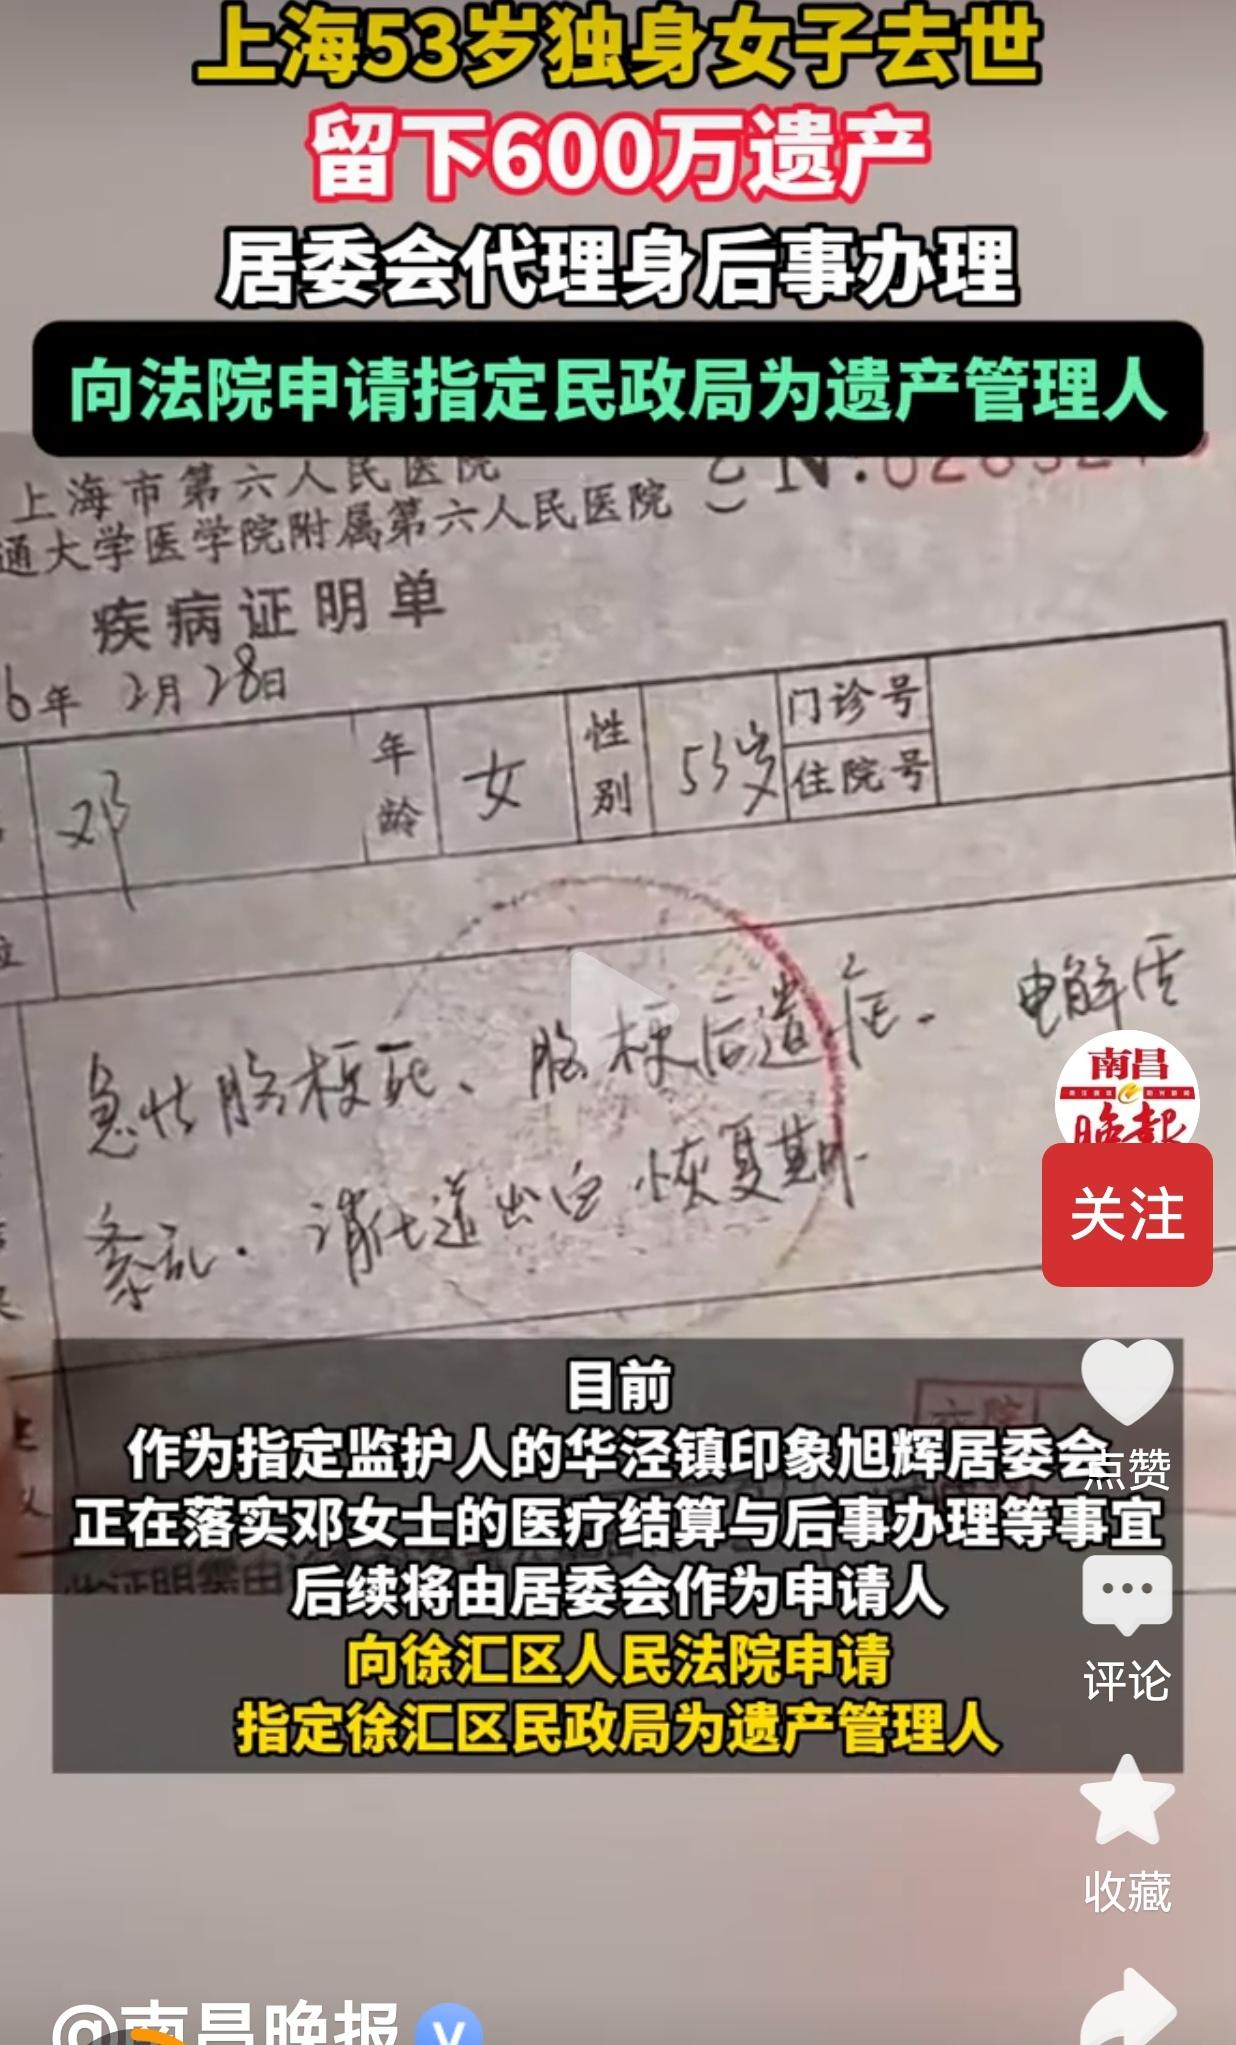 上海53岁独身女子去世
留下600万遗产
居委会代理身后事办理
向法院申请指定民政局为遗产管理人
上海市第六人民医院
通大学医学院附属第六人民医院
疾病证明单
6年 2月28日
邓 年龄 女 性别 53岁 门诊号
住院号
急性脑梗死、脑梗后遗症. 电解质
紊乱. 消化道出血恢复期.
南昌
晚报
关注
目前
作为指定监护人的华泾镇印象旭辉居委会
点赞
正在落实邓女士的医疗结算与后事办理等事宜
后续将由居委会作为申请人
向徐汇区人民法院申请
评论
指定徐汇区民政局为遗产管理人
收藏
@南昌晚报